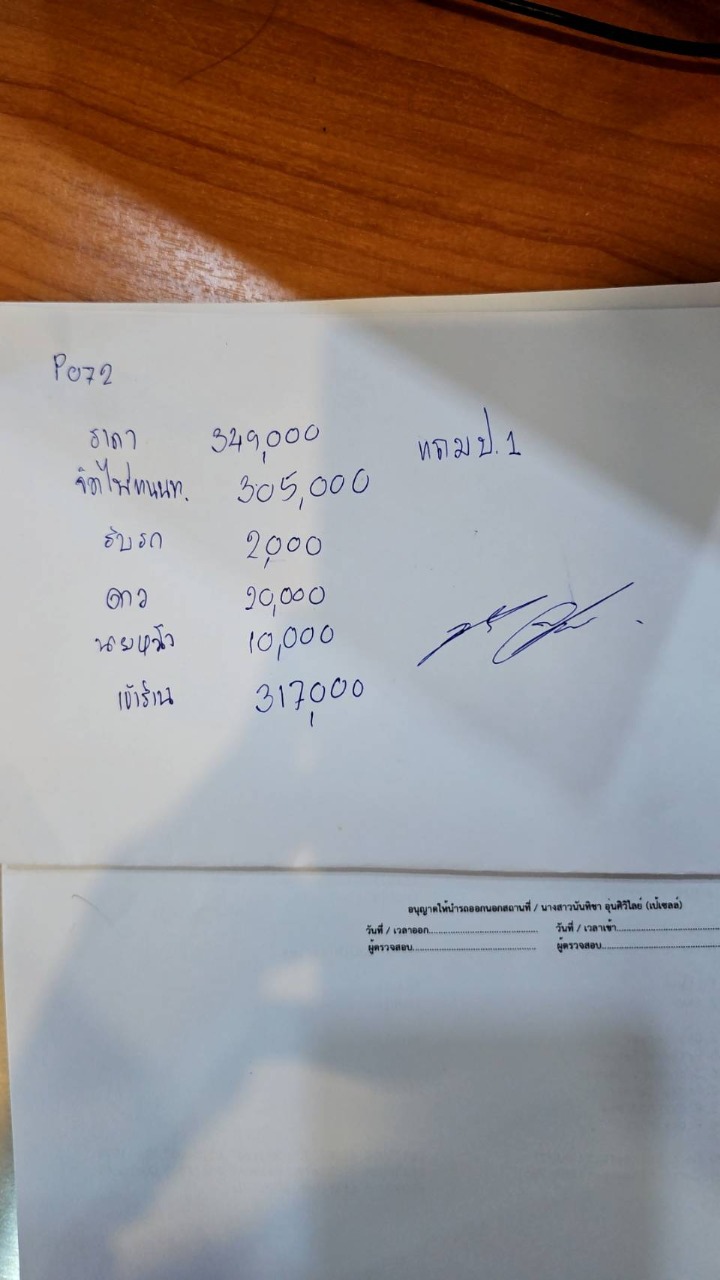 P072
ราคา 349,000 แถมป.1
จัดไฟแนนท. 305,000
รับรถ 2,000
ดาว 20,000
นายหน้า 10,000
เข้าร้าน 317,000
อนุญาตให้นำรถออกนอกสถานที่ / นางสาวนันทิชา อุ่นศิริไลย์ (เป้เซลล์)
วันที่ / เวลาออก........................................ วันที่ / เวลาเข้า........................................
ผู้ตรวจสอบ........................................ ผู้ตรวจสอบ........................................